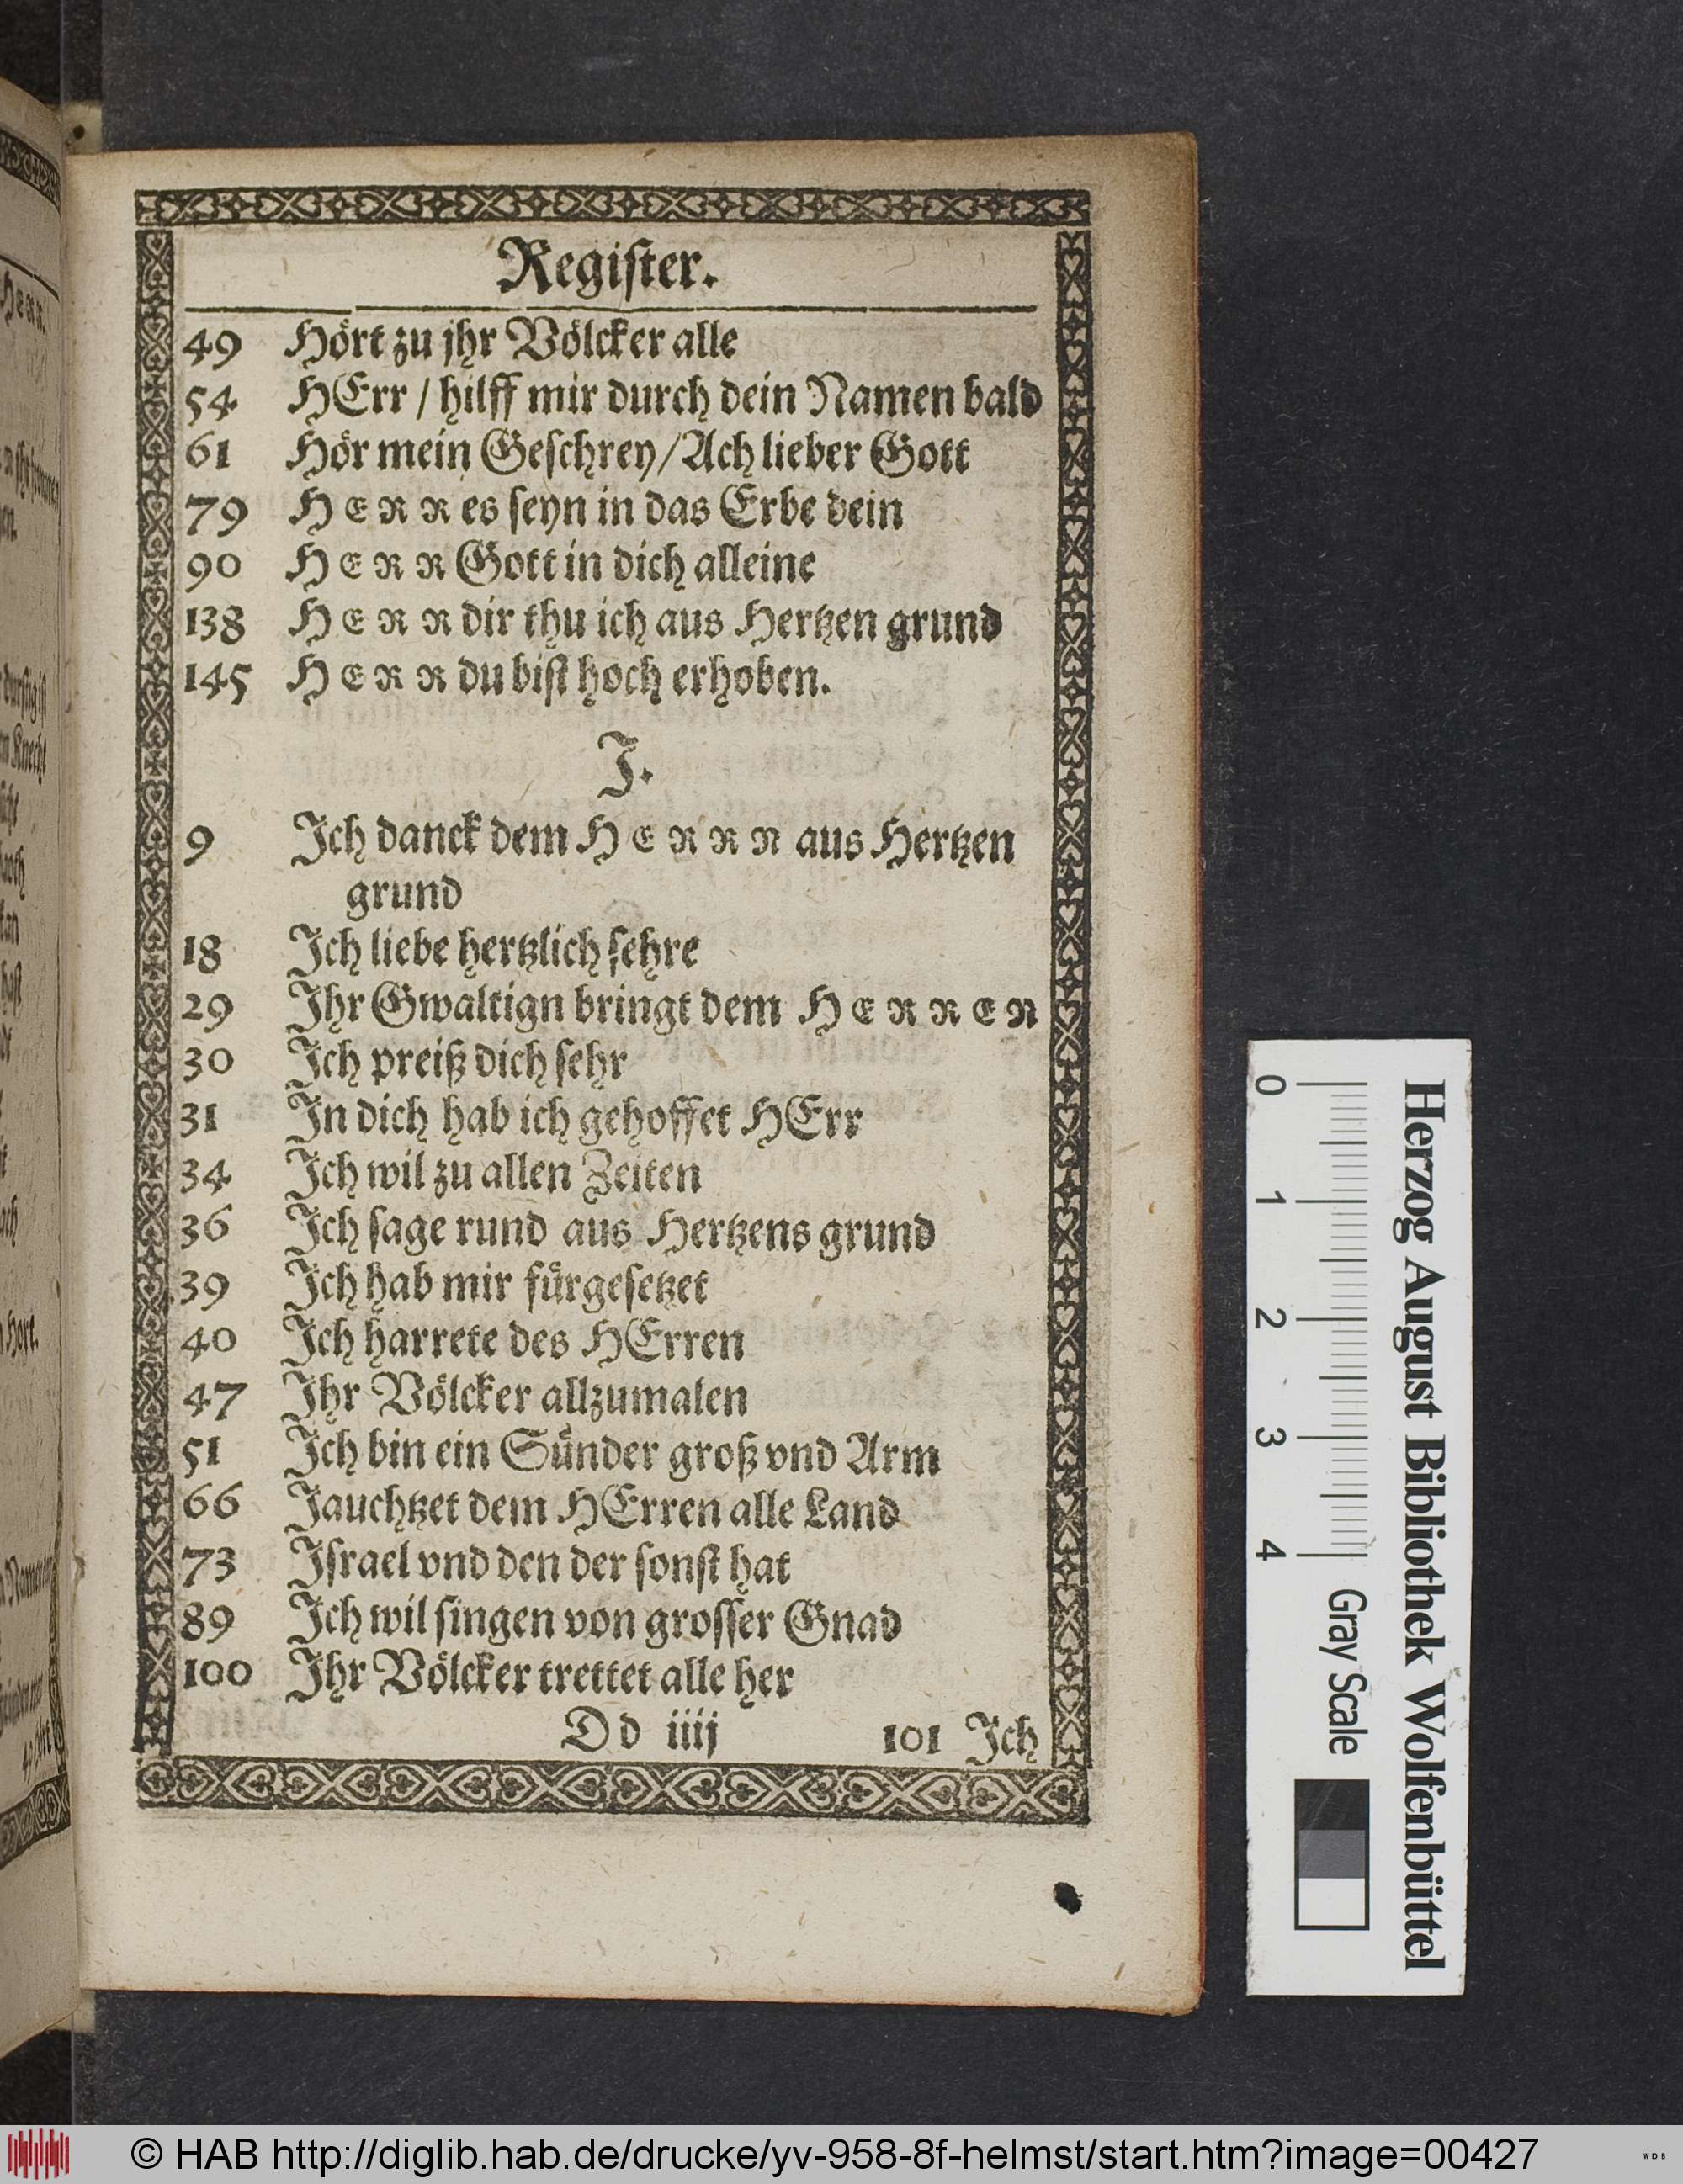 Register.
49 Hört zu jhr Völcker alle
54 HErr / hilff mir durch dein Namen bald
61 Hör mein Geschrey / Ach lieber Gott
79 HERR es seyn in das Erbe dein
90 HERR Gott in dich alleine
138 HERR dir thu ich aus Hertzen grund
145 HERR du bist hoch erhoben.
J.
9 Jch danck dem HERRN aus Hertzen
grund
18 Jch liebe hertzlich sehre
29 Jhr Gwaltign bringt dem HERREN
30 Jch preiß dich sehr
31 Jn dich hab ich gehoffet HErr
34 Jch wil zu allen Zeiten
36 Jch sage rund aus Hertzens grund
39 Jch hab mir fürgesetzet
40 Jch harrete des HErren
47 Jhr Völcker allzumalen
51 Jch bin ein Sünder groß vnd Arm
66 Jauchtzet dem HErren alle Land
73 Jsrael vnd den der sonst hat
89 Jch wil singen von grosser Gnad
100 Jhr Völcker trettet alle her
Dd iiij 101 Jch
Herzog August Bibliothek Wolfenbüttel
0 1 2 3 4 Gray Scale
© HAB http://diglib.hab.de/drucke/yv-958-8f-helmst/start.htm?image=00427
WDB